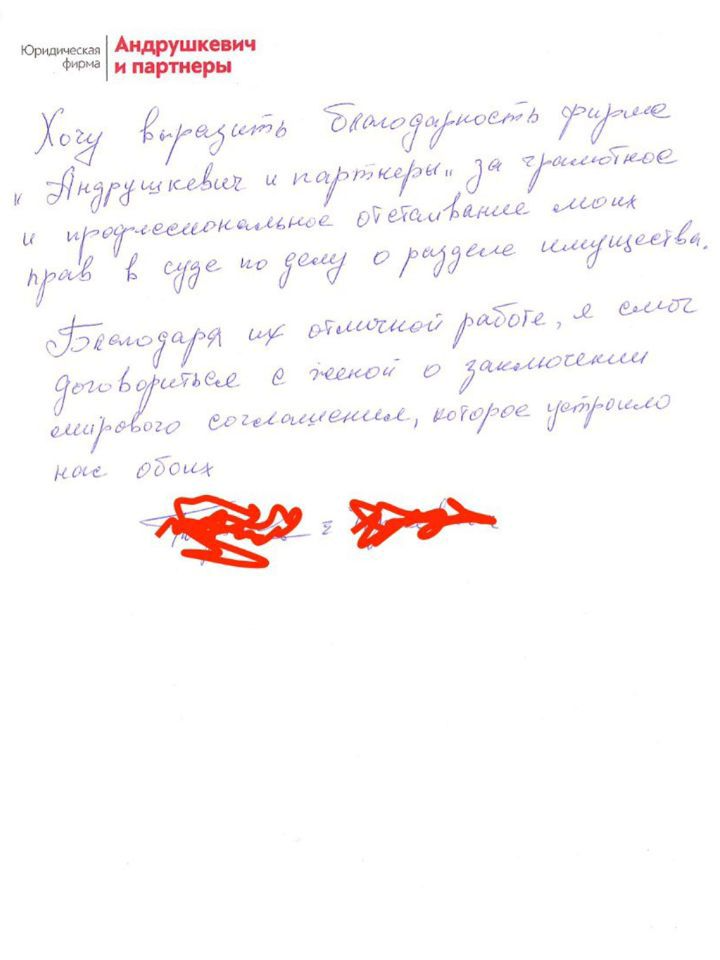 Юридическая фирма
Андрушкевич и партнеры
Хочу выразить благодарность фирме
"Андрушкевич и партнеры" за грамотное
и профессиональное отстаивание моих
прав в суде по делу о разделе имущества.
Благодаря их отличной работе, я смог
договориться с женой о заключении
мирового соглашения, которое устроило
нас обоих